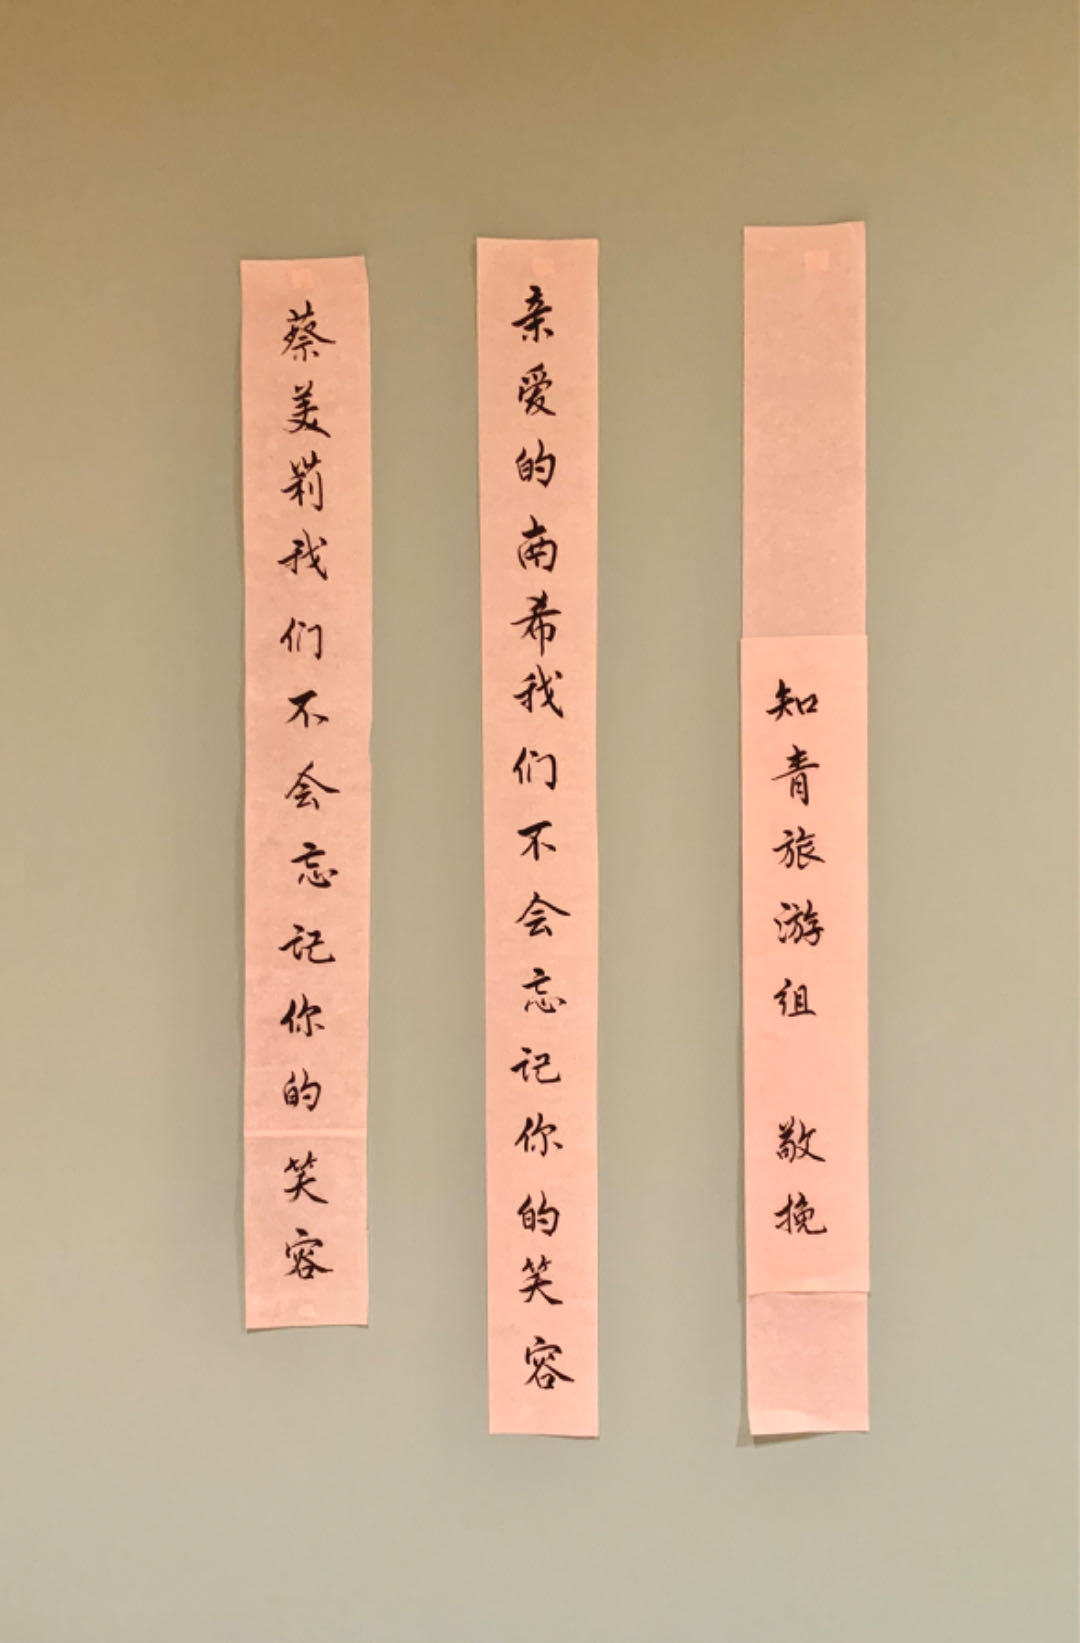 蔡美莉我们不会忘记你的笑容
亲爱的南希我们不会忘记你的笑容
知青旅游组 敬挽